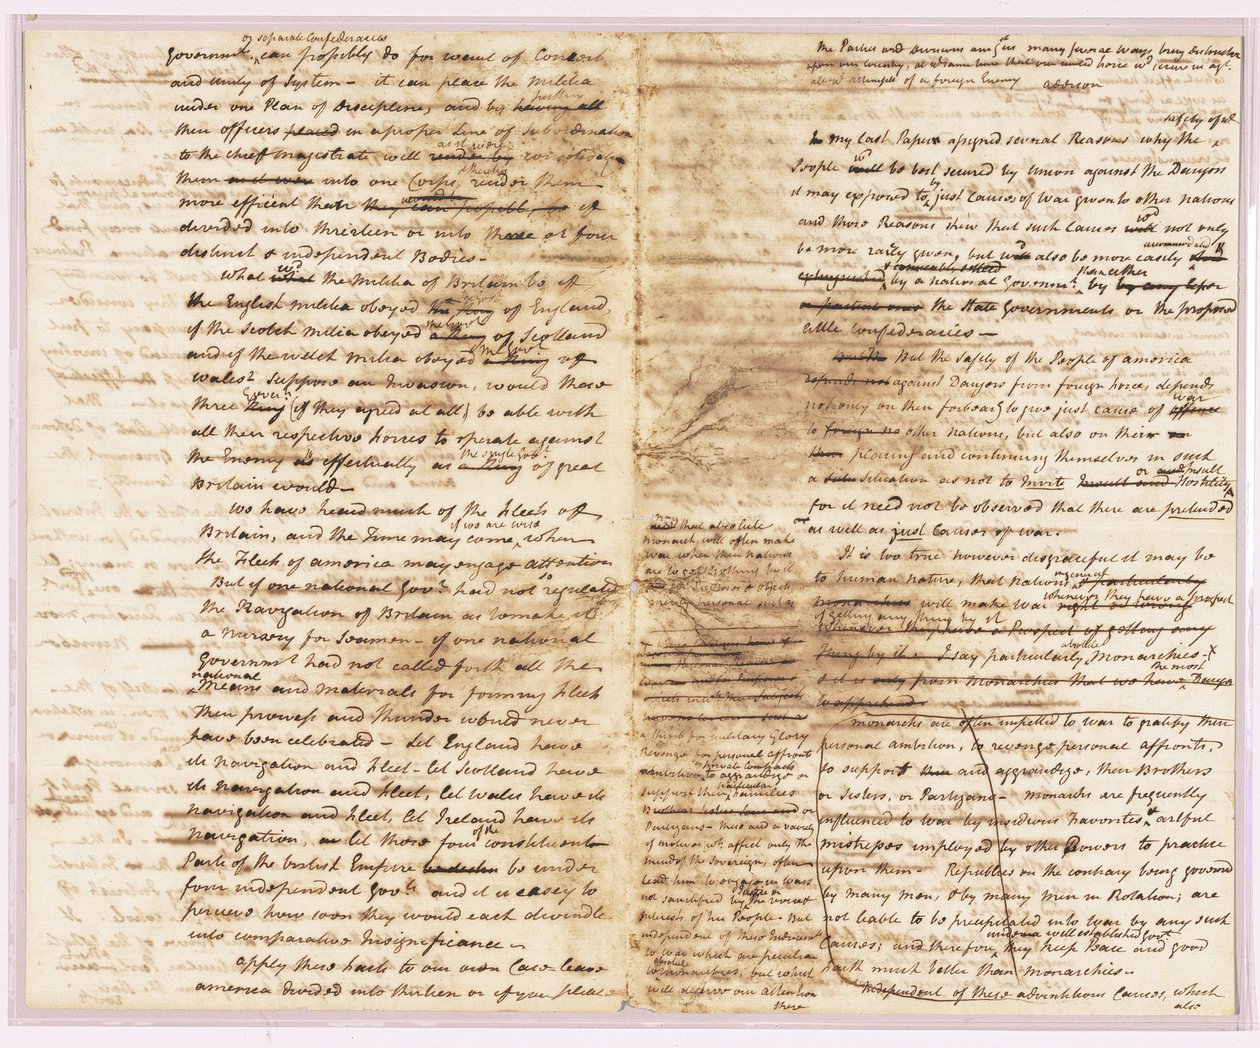 or separate Confederacies
Governmts. can possibly do for want of Concert
and unity of System – it can place the Militia
under one Plan of discipline, and by putting having all
their officers placed in a proper Line of Subordination
to the chief magistrate will as it were render by consolidate
them as it were into one Corps, & thereby render them
more efficient than they can possibly be if
divided into thirteen or into three or four
distinct & independent Bodies –
What wd. what the Militia of Britain be, if
the English militia obeyed the Govt. the King of England
if the Scotch militia obeyed the Govt. a King of Scotland
and if the welch militia obeyed the Govt. a King of
wales? Suppose an Invasion, would these
three Govts. King (if they agreed at all) be able with
all their respective forces to operate against
the Enemy so effectually as the single Govt. a King of great
Britain would –
We have heard much of the Fleets of
Britain, and the Time may come, if we are wise when
the Fleets of america may engage attention
But if one national Govt. had not so regulated
the Navigation of Britain as to make it
a nursery for Seamen – if one national
Governmt had not called forth all the
national Means and materials for forming Fleets
their prowess and thunder would never
have been celebrated – Let England have
its navigation and Fleet – let Scotland have
its Navigation and Fleet, let Wales have its
navigation and Fleet, let Ireland have its
navigation, and let those four of the constituent
Parts of the british Empire be under
four independent Govts. and it is easy to
perceive how soon they would each dwindle
into comparative Insignificance –
apply these facts to our own Case – leave
america divided into thirteen or if you please
the Parties and Divisions amgst us many several ways being destructive
upon our Country, at ye same time that our united force wd. secure us agt.
all ye attempts of a foreign Enemy addison
In my last Paper assigned several Reasons why the safety of ye
People wd. will be best secured by Union against the Danger
it may exposed to by just Causes of war given to other nations
and those Reasons shew that such Causes wd. will not only
be more rarely given, but wd. will also be more easily accommodated
extinguished & amicably settled by a national Governmt. than either by by any lesser
or partial ones the State Governments or the proposed
little Confederacies –
But the Safety of the People of america
depends not against Dangers from foreign force, depends
not only on their forbearg to give just cause of war offence
to foreign other Nations, but also on their
placing and continuing themselves in such
a Situation as not to Invite Hostility or Insult
for it need not be observed that there are pretended
as well as just Causes of war.
It is too true however disgraceful it may be
to human nature, that nations in general & particularly
monarchies will make war whenever they have a prospect right or wrong
of getting any thing by it
whenever they have a Prospect of getting any
thing by it – I say particularly absolute Monarchies –
& it is only from monarchies that we have the most Danger
to apprehend
monarchs are often impelled to war to gratify their
personal ambition, to revenge personal affronts,
to support and aggrandize, their Brothers
or Sisters, or Partizans – monarchs are frequently
influenced to war by insidious Favorites, & artful
mistresses imployed by other Powers to practice
upon them – Republics on the contrary being governed
by many men, & by many men in Rotation; are
not liable to be precipitated into war by any such
Causes; and therefore, under a well established Govt. they keep Peace and good
Faith much better than monarchies –
Independent of these adventitious Causes, which
also
that absolute
monarchs, will often make
war when their nations
are to get Nothing by it
but for Purposes & objects
merely personal such as
a thirst for military Glory
Revenge for personal affronts
ambition, or private contracts to aggrandize or
support their particular Families
or
Partizans – these and a variety
of motives wh. affect only the
mind of the Sovereign, often
lead him to engage in wars
not sanctified by Justice or the voice &
Interests of his People – But
independent of these Inducemts
to war which are peculiar
to absolute monarchies, but which
will deserve our attention
there